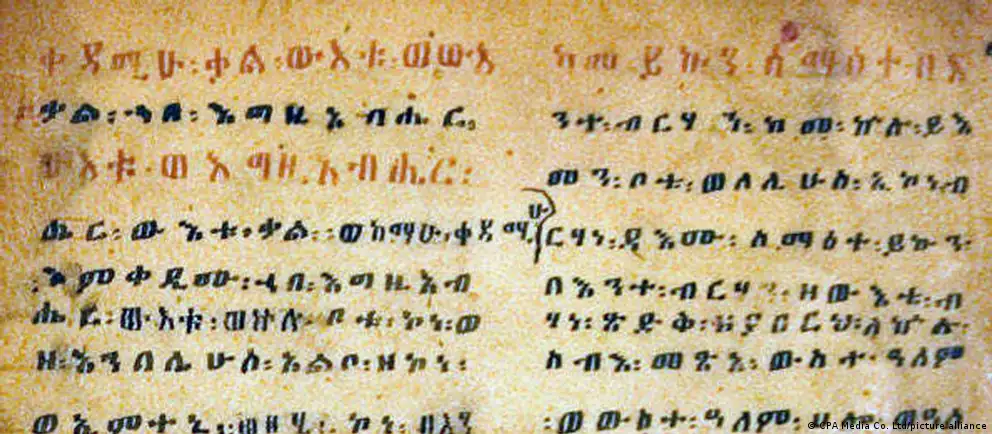 ቀዳሚሁ፡ቃል፡ውእቱ፡ወውእ
ቃል፡ኀበ፡እግዚአብሔር፡
ውእቱ፡ወእግዚአብሔር፡
ሔር፡ውእቱ፡ቃል።ወከማሁ፡ቀዳሚሁ
እምቀዲሙ፡ኀበ፡እግዚአብ
ሔር፡ውእቱ፡ወኵሉ፡ቦቱ፡ኮነ፡ወ
ዘ፡እንበሌሁሰ፡አልቦ፡ዘኮነ፡
ከመ፡ይኩን፡ሰማዕተ፡በእ
ንተ፡ብርሃን፡ከመ፡ኵሉ፡ይአ
መን፡ቦቱ፡ወለሊሁሰ፡ኢኮነ፡ብ
ርሃነ፡ዳእሙ፡ሰማዕተ፡ይኩን፡
በእንተ፡ብርሃን፡ዘውእቱ፡ብ
ሃነ፡ጽድቅ፡ዘያበርህ፡ለኵሉ፡
ሰብእ፡መጽአ፡ውስተ፡ዓለም
፡ወውስተ፡ዓለም፡ሀሎ፡ወዓለ
© CPA Media Co. Ltd/picture alliance